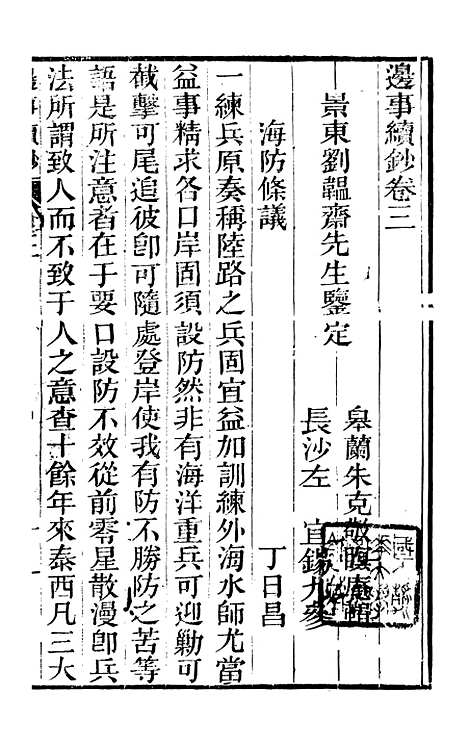 邊事續鈔卷三
景東劉韞齋先生鑒定
皋蘭朱克敬
長沙左 宜
海防條議
丁日昌
一練兵原奏稱陸路之兵固宜益加訓練外海水師尤當
益事精求各口岸固須設防然非有海洋重兵可迎勦可
截擊可尾追彼卽可隨處登岸使我有防不勝防之苦等
語是所注意者在于要口設防不效從前零星散漫卽兵
法所謂致人而不致于人之意查十餘年來泰西凡三大